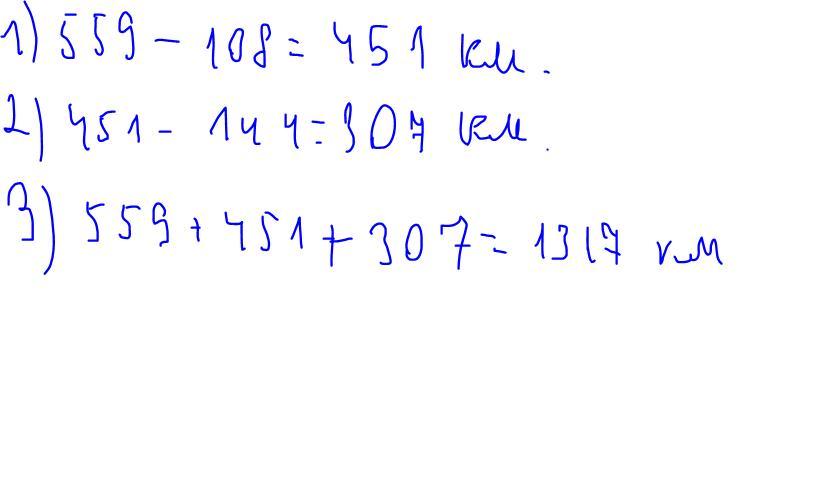 1) 559 - 108 = 451 км.
2) 451 - 144 = 307 км.
3) 559 + 451 + 307 = 1317 км